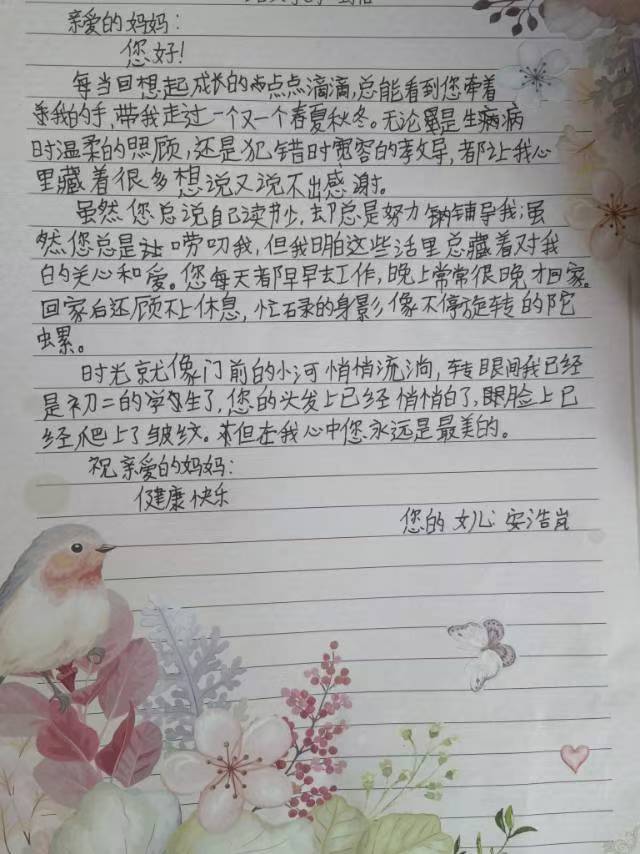 亲爱的妈妈：
您好！
每当回想起成长的点点滴滴，总能看到您牵着
我的手，带我走过一个又一个春夏秋冬。无论是生病
时温柔的照顾，还是犯错时宽容的教导，都让我心
里藏着很多想说又说不出感谢。
虽然您总说自己读书少，却总是努力辅导我；虽
然您总是唠叨我，但我明白这些话里总藏着对我
的关心和爱。您每天都早早去工作，晚上常常很晚才回家。
回家后还顾不上休息，忙碌的身影像不停旋转的陀
螺。
时光就像门前的小河悄悄流淌，转眼间我已经
是初二的学生了，您的头发上已经悄悄白了，眼脸上已
经爬上了皱纹。但在我心中您永远是最美的。
祝亲爱的妈妈：
健康快乐
您的女儿 安浩岚